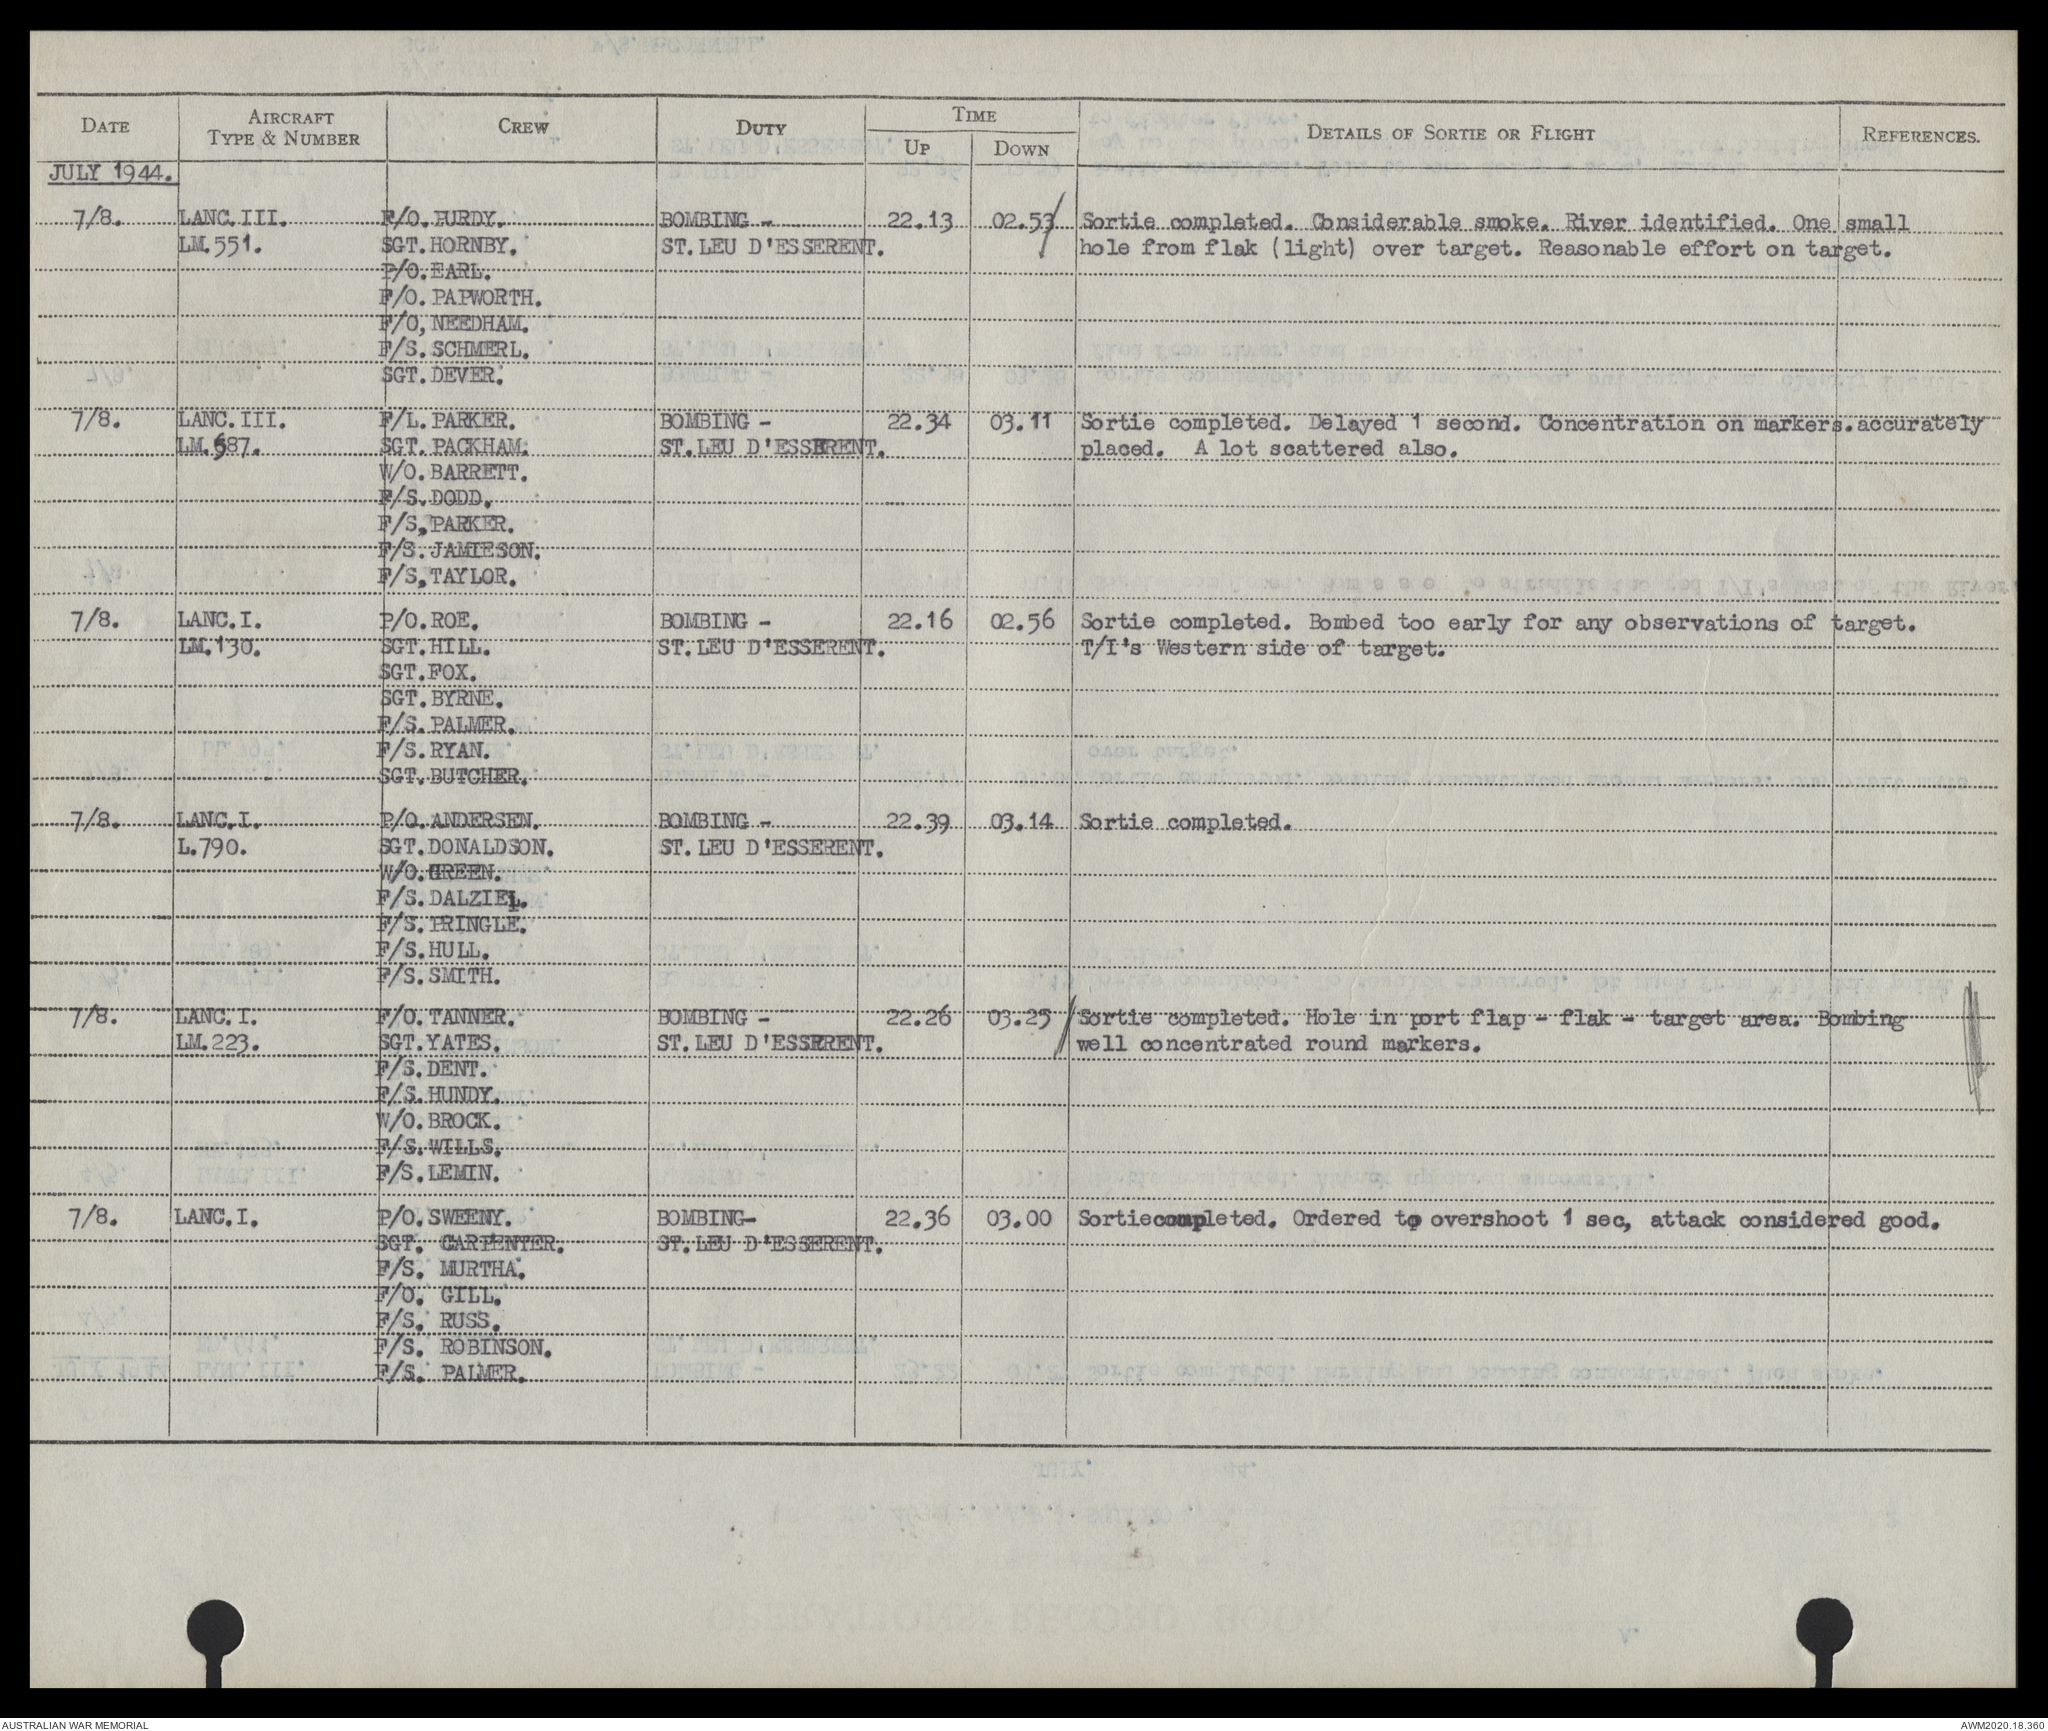 DATE AIRCRAFT TYPE & NUMBER CREW DUTY TIME UP DOWN DETAILS OF SORTIE OR FLIGHT REFERENCES.
JULY 1944.
7/8. LANC.III. F/O. HURDY. BOMBING - 22.13 02.53 Sortie completed. Considerable smoke. River identified. One small
LM.551. SGT.HORNBY. ST.LEU D'ESSERENT. hole from flak (light) over target. Reasonable effort on target.
P/O.EARL.
F/O.PAPWORTH.
F/O,NEEDHAM.
F/S.SCHMERL.
SGT.DEVER.
7/8. LANC.III. F/L. PARKER. BOMBING - 22.34 03.11 Sortie completed. Delayed 1 second. Concentration on markers.accurately
LM.587. SGT. PACKHAM. ST.LEU D'ESSERENT. placed. A lot scattered also.
W/O. BARRETT.
F/S.DODD.
F/S,PARKER.
F/S.JAMIESON.
F/S,TAYLOR.
7/8. LANC.I. P/O.ROE. BOMBING - 22.16 02.56 Sortie completed. Bombed too early for any observations of target.
LM.130. SGT.HILL. ST.LEU D'ESSERENT. T/I's Western side of target.
SGT.FOX.
SGT.BYRNE.
F/S.PALMER.
F/S.RYAN.
SGT.BUTCHER.
7/8. LANC.I. P/O.ANDERSEN. BOMBING - 22.39 03.14 Sortie completed.
L.790. SGT.DONALDSON. ST.LEU D'ESSERENT.
W/O.GREEN.
F/S.DALZIEL.
F/S.PRINGLE.
F/S.HULL.
F/S.SMITH.
7/8. LANC.I. F/O.TANNER. BOMBING - 22.26 03.25 Sortie completed. Hole in port flap - flak - target area. Bombing
LM.223. SGT.YATES. ST.LEU D'ESSERENT. well concentrated round markers.
F/S.DENT.
F/S.HUNDY.
W/O.BROCK.
F/S.WILLS.
F/S.LEMIN.
7/8. LANC.I. P/O.SWEENY. BOMBING- 22.36 03.00 Sortiecompleted. Ordered to overshoot 1 sec, attack considered good.
SGT. CARPENTER. ST.LEU D'ESSERENT.
F/S. MURTHA.
F/O. GILL.
F/S. RUSS.
F/S. ROBINSON.
F/S. PALMER.
AUSTRALIAN WAR MEMORIAL AWM2020.18.360